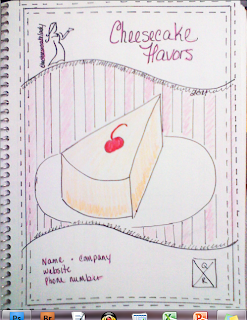 Cheesecake
Flavors
2011
Name + Company
website
Phone number
Q
R